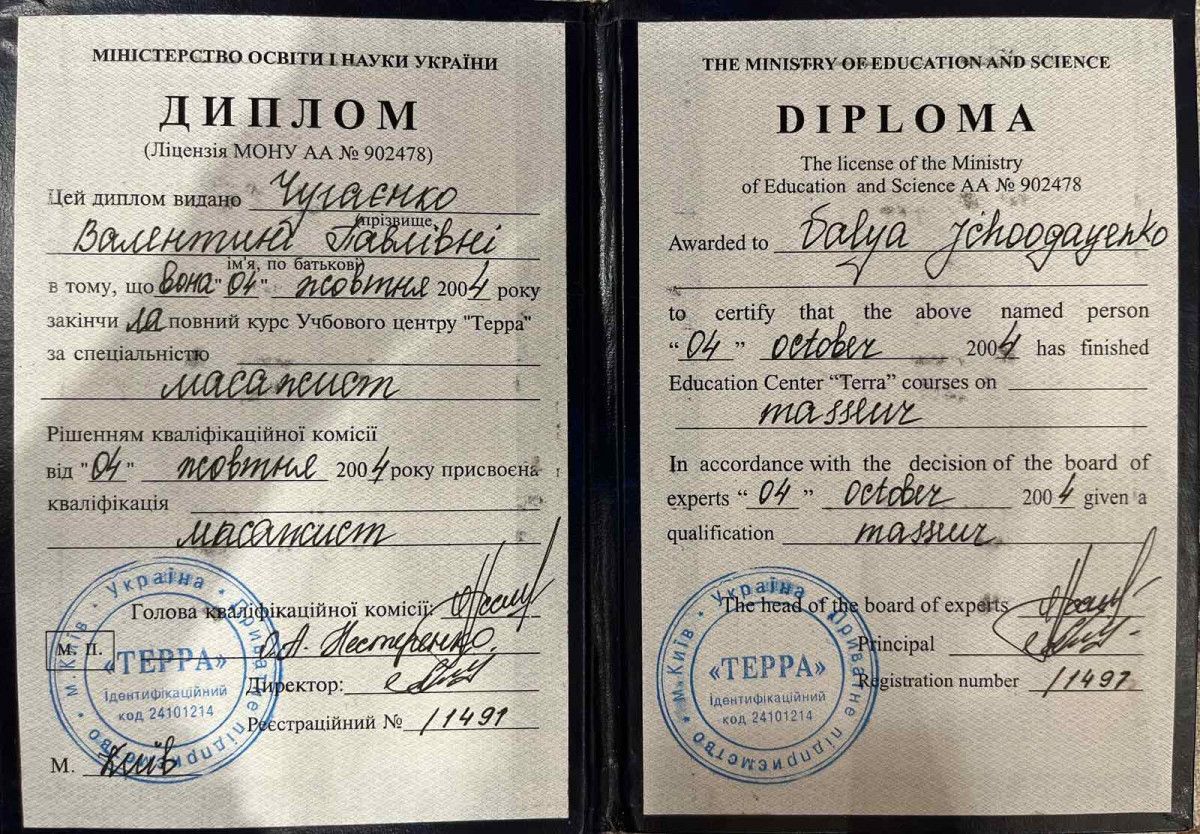 МІНІСТЕРСТВО ОСВІТИ І НАУКИ УКРАЇНИ
ДИПЛОМ
(Ліцензія МОНУ АА № 902478)
Цей диплом видано Чугаєнко
(прізвище,
Валентині Павлівні
ім'я, по батькові)
в тому, що вона "04" жовтня 2004 року
закінчи ла повний курс Учбового центру "Терра"
за спеціальністю
масажист
Рішенням кваліфікаційної комісії
від "04" жовтня 2004 року присвоєна
кваліфікація
масажист
Голова кваліфікаційної комісії:
М. П. О.А. Нестеренко
Директор:
Реєстраційний № /1491
М. Київ
м. Київ * Україна * Приватне підприємство *
«ТЕРРА»
Ідентифікаційний
код 24101214
THE MINISTRY OF EDUCATION AND SCIENCE
DIPLOMA
The license of the Ministry
of Education and Science АА № 902478
Awarded to Valya Jchoogayenko
to certify that the above named person
“04” october 2004 has finished
Education Center “Terra” courses on
masseur
In accordance with the decision of the board of
experts “04” october 2004 given a
qualification masseur
The head of the board of experts
Principal
Registration number /1491
м. Київ * Україна * Приватне підприємство *
«ТЕРРА»
Ідентифікаційний
код 24101214